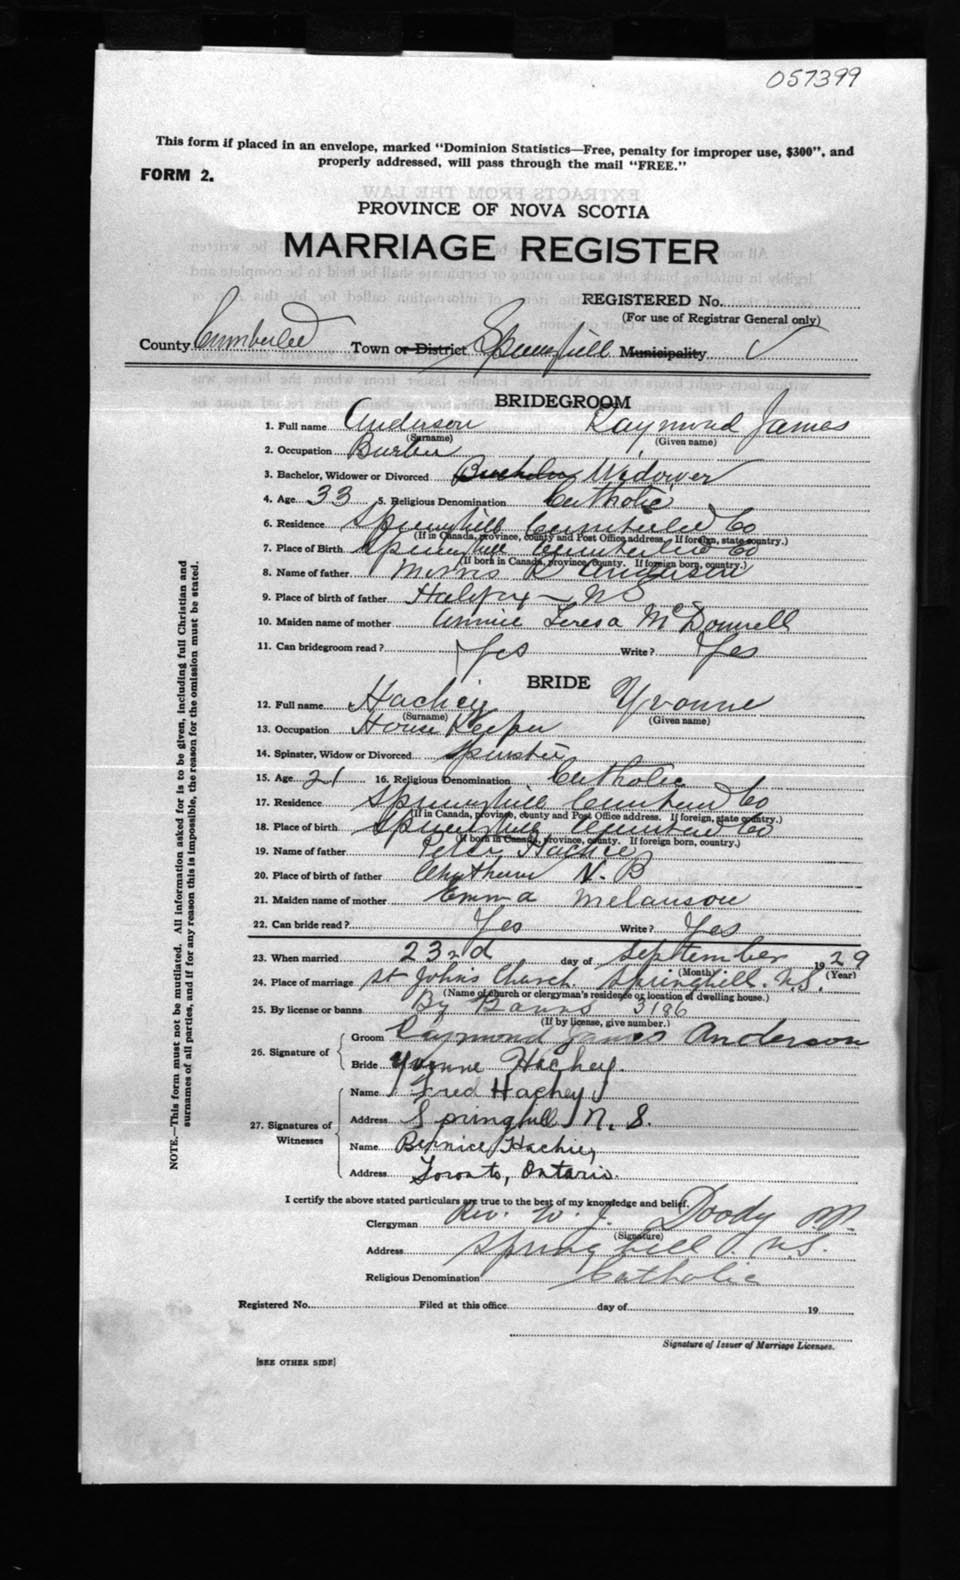 057399
This form if placed in an envelope, marked "Dominion Statistics—Free, penalty for improper use, $300", and
properly addressed, will pass through the mail "FREE."
FORM 2.
PROVINCE OF NOVA SCOTIA
MARRIAGE REGISTER
REGISTERED No.
(For use of Registrar General only)
County Cumberland Town or District Springhill Municipality
BRIDEGROOM
1. Full name Anderson Raymond James
(Surname) (Given name)
2. Occupation Barber
3. Bachelor, Widower or Divorced Bachelor Widower
4. Age 33 5. Religious Denomination Catholic
6. Residence Springhill Cumberland Co
(If in Canada, province, county and Post Office address. If foreign, state country.)
7. Place of Birth Springhill Cumberland Co
(If born in Canada, province, county. If foreign born, country.)
8. Name of father Morris R Anderson
9. Place of birth of father Halifax - NS
10. Maiden name of mother Annie Teresa McDonnell
11. Can bridegroom read? Yes Write? Yes
BRIDE
12. Full name Hachey Yvonne
(Surname) (Given name)
13. Occupation House Keeper
14. Spinster, Widow or Divorced Spinster
15. Age 21 16. Religious Denomination Catholic
17. Residence Springhill Cumberland Co
(If in Canada, province, county and Post Office address. If foreign, state country.)
18. Place of birth Springhill Cumberland Co
(If born in Canada, province, county. If foreign born, country.)
19. Name of father Peter Hachie
20. Place of birth of father Chatham N. B
21. Maiden name of mother Emma Melanson
22. Can bride read? Yes Write? Yes
23. When married 23rd day of September 1929
(Month) (Year)
24. Place of marriage St John's Church. Springhill. N.S.
(Name of church or clergyman's residence or location of dwelling house.)
25. By license or banns By Banns 3186
(If by license, give number.)
26. Signature of
Groom Raymond James Anderson
Bride Yvonne Hachey.
27. Signatures of Witnesses
Name Fred Hachey
Address Springhill N. S.
Name Bernice Hachey
Address Toronto, Ontario.
I certify the above stated particulars are true to the best of my knowledge and belief.
Clergyman Rev. W. J. Doody P.P.
(Signature)
Address Springhill. N.S.
Religious Denomination Catholic
Registered No. Filed at this office day of 19
Signature of Issuer of Marriage Licenses.
[SEE OTHER SIDE]
NOTE.—This form must not be mutilated. All information asked for is to be given, including full Christian and
surnames of all parties, and if for any reason this is impossible, the reason for the omission must be stated.